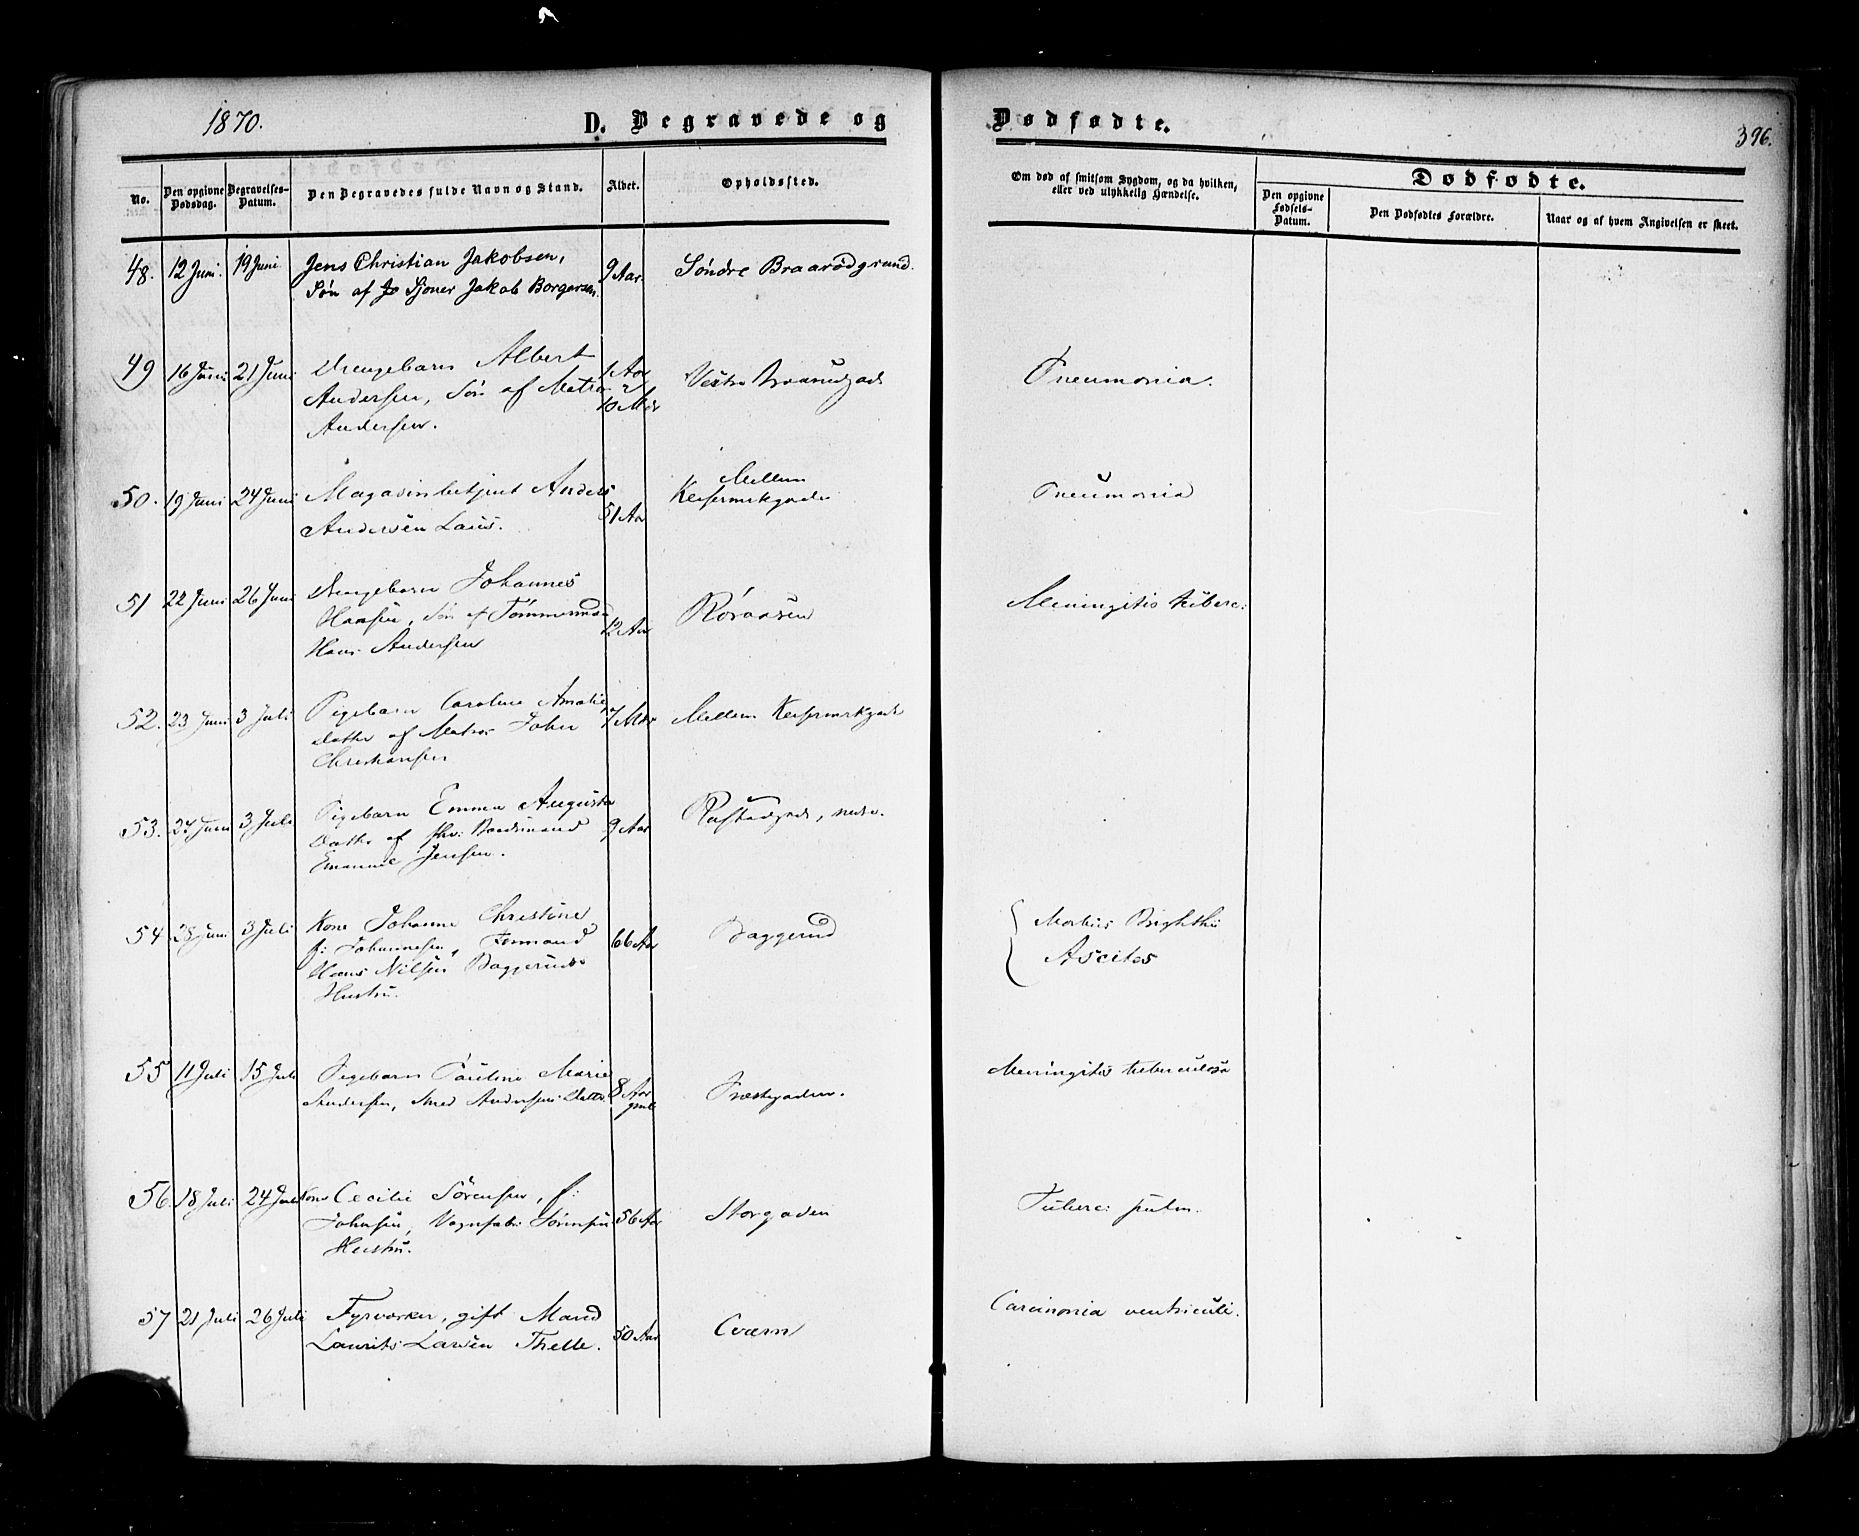 1870.
D. Begravede og
Dødfødte.
396.
No.
Den opgivne Dødsdag.
Begravelses-Datum.
Den Begravedes fulde Navn og Stand.
Alder.
Opholdssted.
Om død af smitsom Sygdom, og da hvilken,
eller ved ulykkelig Hændelse.
Dødfødte.
Den opgivne Fødsels-Datum.
Den Dødfødtes Forældre.
Naar og af hvem Angivelsen er skeet.
48. 12 Juni. 19 Juni Jens Christian Jakobsen, 9 Aar. Søndre Braarødgrund.
Søn af Sjöner Jakob Borgersen
49 16 Juni 21 Juni Drengebarn Albert 1 Aar Vestre Pneumonia.
Andersen, Søn af Matros 10 Mdr
Andersen.
50. 19 Juni 24 Juni Magasinbetjent Anders 51 Aar Mellem Pneumonia
Andersen
51 22 Juni 26 Juni Drengebarn Johannes 12 Aar Røraasen Meningitis tuberc:
Hansen, Søn af Tømmermand
Hans Andersen
52. 23 Juni 3 Juli Pigebarn Caroline Amalie 7 Mdr Mellem
Datter af Matros John
Christiansen
53. 27 Juni 3 Juli Pigebarn Emma Augusta 9 Aar nedre.
Datter af Baadsmand
Emanuel Jensen.
54 28 Juni 3 Juli Kone Johanne Christine 66 Aar Baggerud Morbus Brightii
f: Johannesen, Hans Nilsen Baggeruds Ascites
Hustru.
55 11 Juli 15 Juli Pigebarn Pauline Marie 8 Aar gml Præstegaden. Meningitis tuberculosa
Andersen, Smed Andersens Datter
56. 18 Juli 24 Juli Kone Cecilie Sørensen, f: 56 Aar Storgaden Tuberc: pulm.
Johnsen, Vognfabr: Sørensens
Hustru.
57 21 Juli 26 Juli Fyrværker, gift Mand 50 Aar Cværn Carcinonia ventriculi.
Laurits Larsen Thelle.